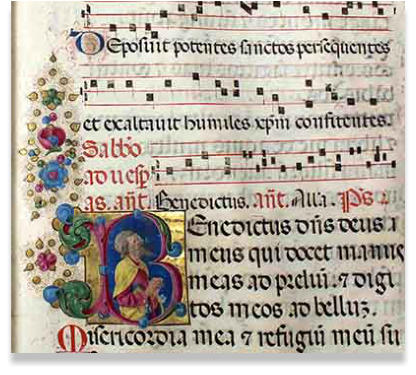 Deposuit potentes sanctos persequentes
et exaltauit humiles xpm confitentes.
Sabbo
ad uesp
as. ant. Benedictus. ant. Alla. Ps
Benedictus dns deus
meus qui docet manus
meas ad preliu. ⁊ digi
tos meos ad belluz.
Misericordia mea ⁊ refugiu meu su